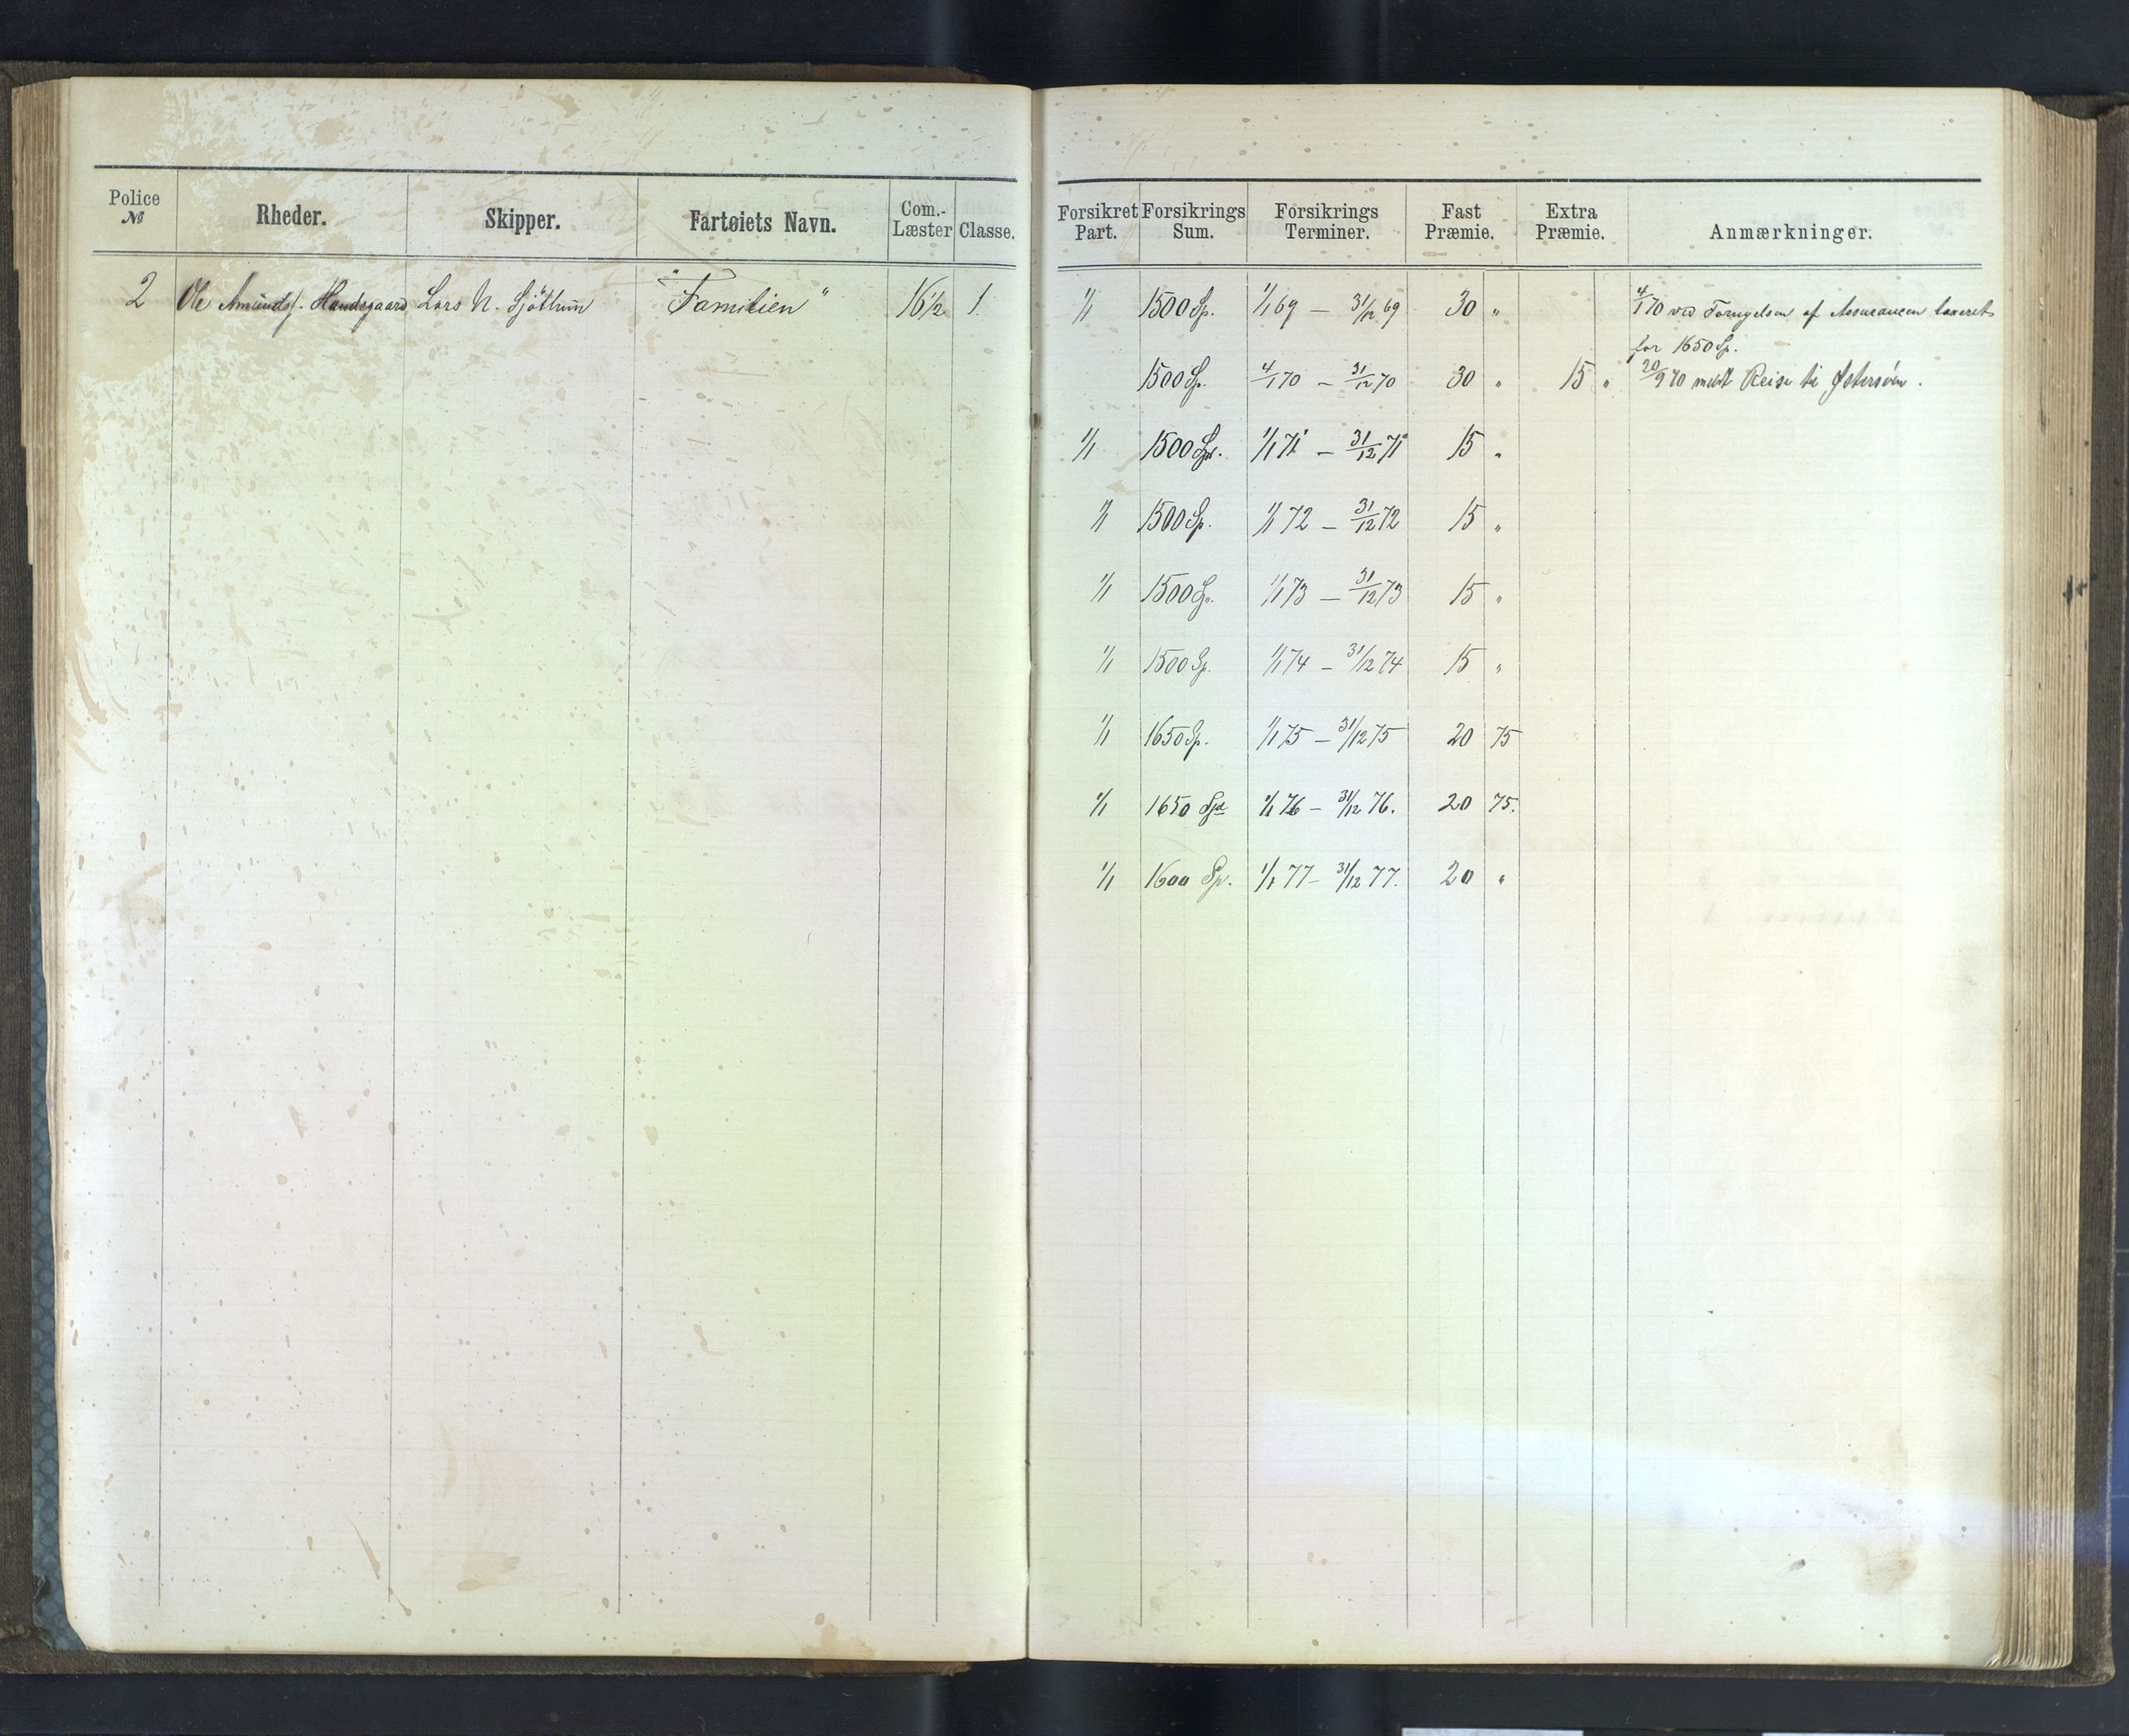 Police № Rheder. Skipper. Fartøiets Navn. Com.-Læster Classe. Forsikret Part. Forsikrings Sum. Forsikrings Terminer. Fast Præmie. Extra Præmie. Anmærkninger.
2 Ole Amunds. Handsgaard Lars N. Sjöthun "Familien" 16½ 1. 1/1 1500 Sp. 1/1 69 — 31/12 69 30 " 4/1 70 ved Fornyelsen af Assurancen taxeret
for 1650 Sp.
1500 Sp. 4/1 70 — 31/12 70 30 " 15 " 20/9 70 meldt Reise til Østersöen.
1/1 1500 Sp. 1/1 71 — 31/12 71 15 "
1/1 1500 Sp. 1/1 72 — 31/12 72 15 "
1/1 1500 Sp. 1/1 73 — 31/12 73 15 "
1/1 1500 Sp. 1/1 74 — 31/12 74 15 "
1/1 1650 Sp. 1/1 75 — 31/12 75 20 75
1/1 1650 Spd 1/1 76 — 31/12 76. 20 75.
1/1 1600 Sp. 1/1 77 — 31/12 77. 20 "